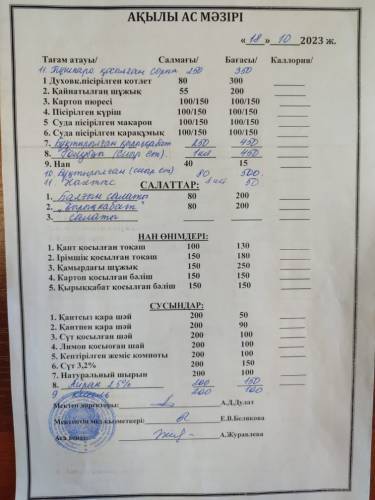 АҚЫЛЫ АС МӘЗІРІ
« 18 » 10 2023 ж.
Тағам атауы/ Салмағы/ Бағасы/ Каллория/
11. қосылған сорпа 250 350
1 Духовк.пісірілген котлет 80 300
2. Қайнатылған шұжық 55 200
3. Картоп пюресі 100/150 100/150
4. Пісірілген күріш 100/150 100/150
5 Суда пісірілген макарон 100/150 100/150
6. Суда пісірілген қарақұмық 100/150 100/150
7. Бұқтырылған қырыққабат 250 450
8. Голубцы (сиыр ет) 1шт 450
9. Нан 40 15
10 Бұқтырылған (сиыр ет) 80 500
11 1шт 50
САЛАТТАР:
1. Балғын салаты 80 200
2. "Қырыққабат" 80 200
3. салаты
НАН ӨНІМДЕРІ:
1. Қант қосылған тоқаш 100 130
2. Ірімшік қосылған тоқаш 150 180
3. Қамырдағы шұжық 150 250
4. Картоп қосылған бәліш 150 150
5. Қырыққабат қосылған бәліш 150 150
СУСЫНДАР:
1. Қантсыз қара шәй 200 50
2. Кантпен қара шәй 200 90
3. Сүт қосылған шәй 200 100
4. Лимон қосыоған шай 200 100
5. Кептірілген жеміс компоты 200 100
6. Сүт 3,2% 200 150
7. Натуральный шырын 200 100
8. Айран 2,5% 200 150
9 кисель 200 100
Мектеп директоры: А.Д.Дулат
Мектептің мед.қызметкері: Е.В.Беликова
А.Журавлева